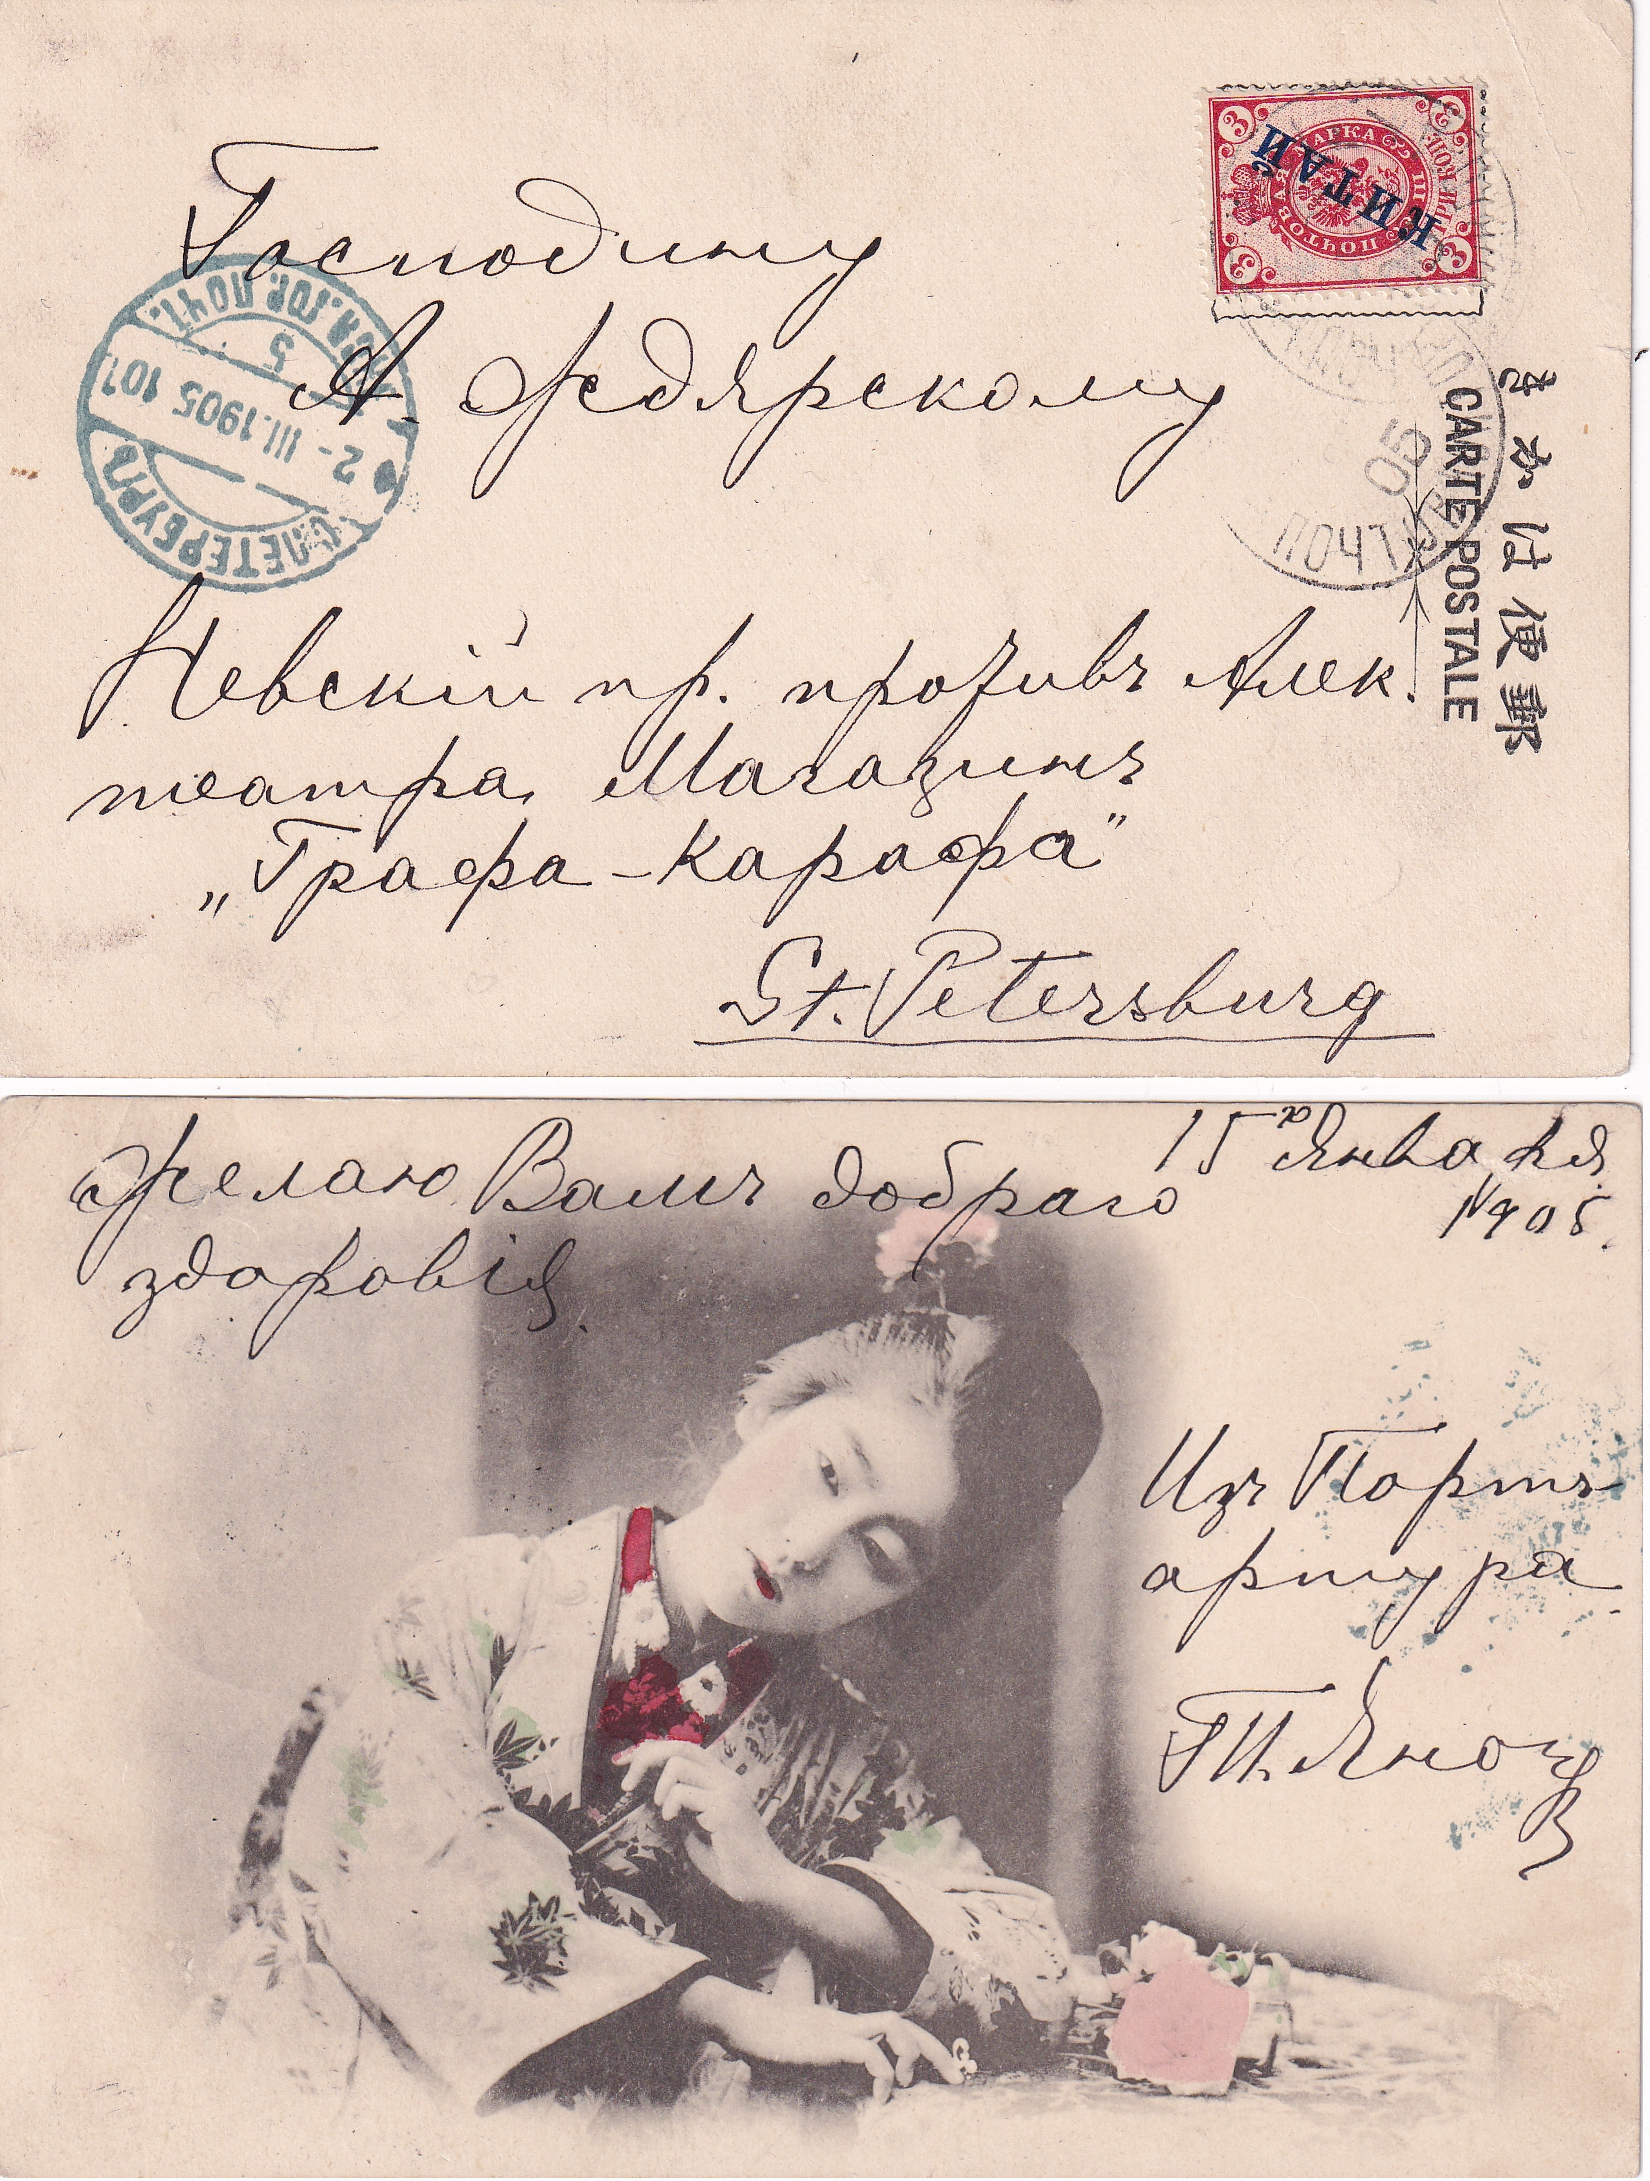 Господину
А. Федярскому
Невскій пр. противъ Алек.
театра, Магазинъ
„Графа-Карафа"
St. Petersburg
КИТАЙ
ПОЧТОВАЯ МАРКА
ТРИ КОП.
3 3 3 3
С.ПЕТЕРБУРГЪ
2- III.1905 10
5
ПОЧТ
05
CARTE POSTALE
きかは便郵
Желаю Вамъ добраго
здоровія.
15а Января
1905.
Изъ Портъ
артура.